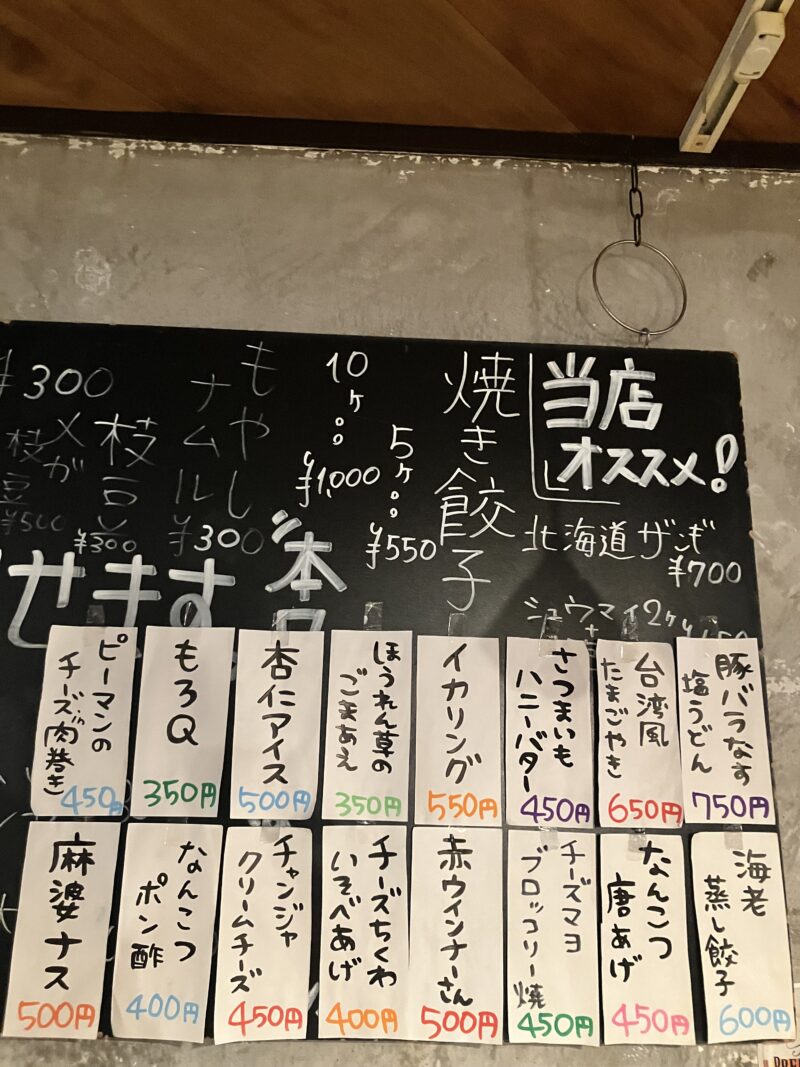 当店
オススメ!
北海道ザンギ
¥700
シュウマイ2ケ
焼き餃子
5ケ
¥550
10ケ
¥1,000
もやし
ナムル
¥300
枝豆
¥300
メガ
枝豆
¥500
¥300
せます
豚バラなす
塩うどん
750円
台湾風
たまごやき
650円
さつまいも
ハニーバター
450円
イカリング
550円
ほうれん草の
ごまあえ
350円
杏仁アイス
500円
もろQ
350円
ピーマンの
チーズin肉巻き
450円
海老
蒸し餃子
600円
なんこつ
唐あげ
450円
チーズマヨ
ブロッコリー焼
450円
赤ウインナーさん
500円
チーズちくわ
いそべあげ
400円
チャンジャ
クリームチーズ
450円
なんこつ
ポン酢
400円
麻婆ナス
500円